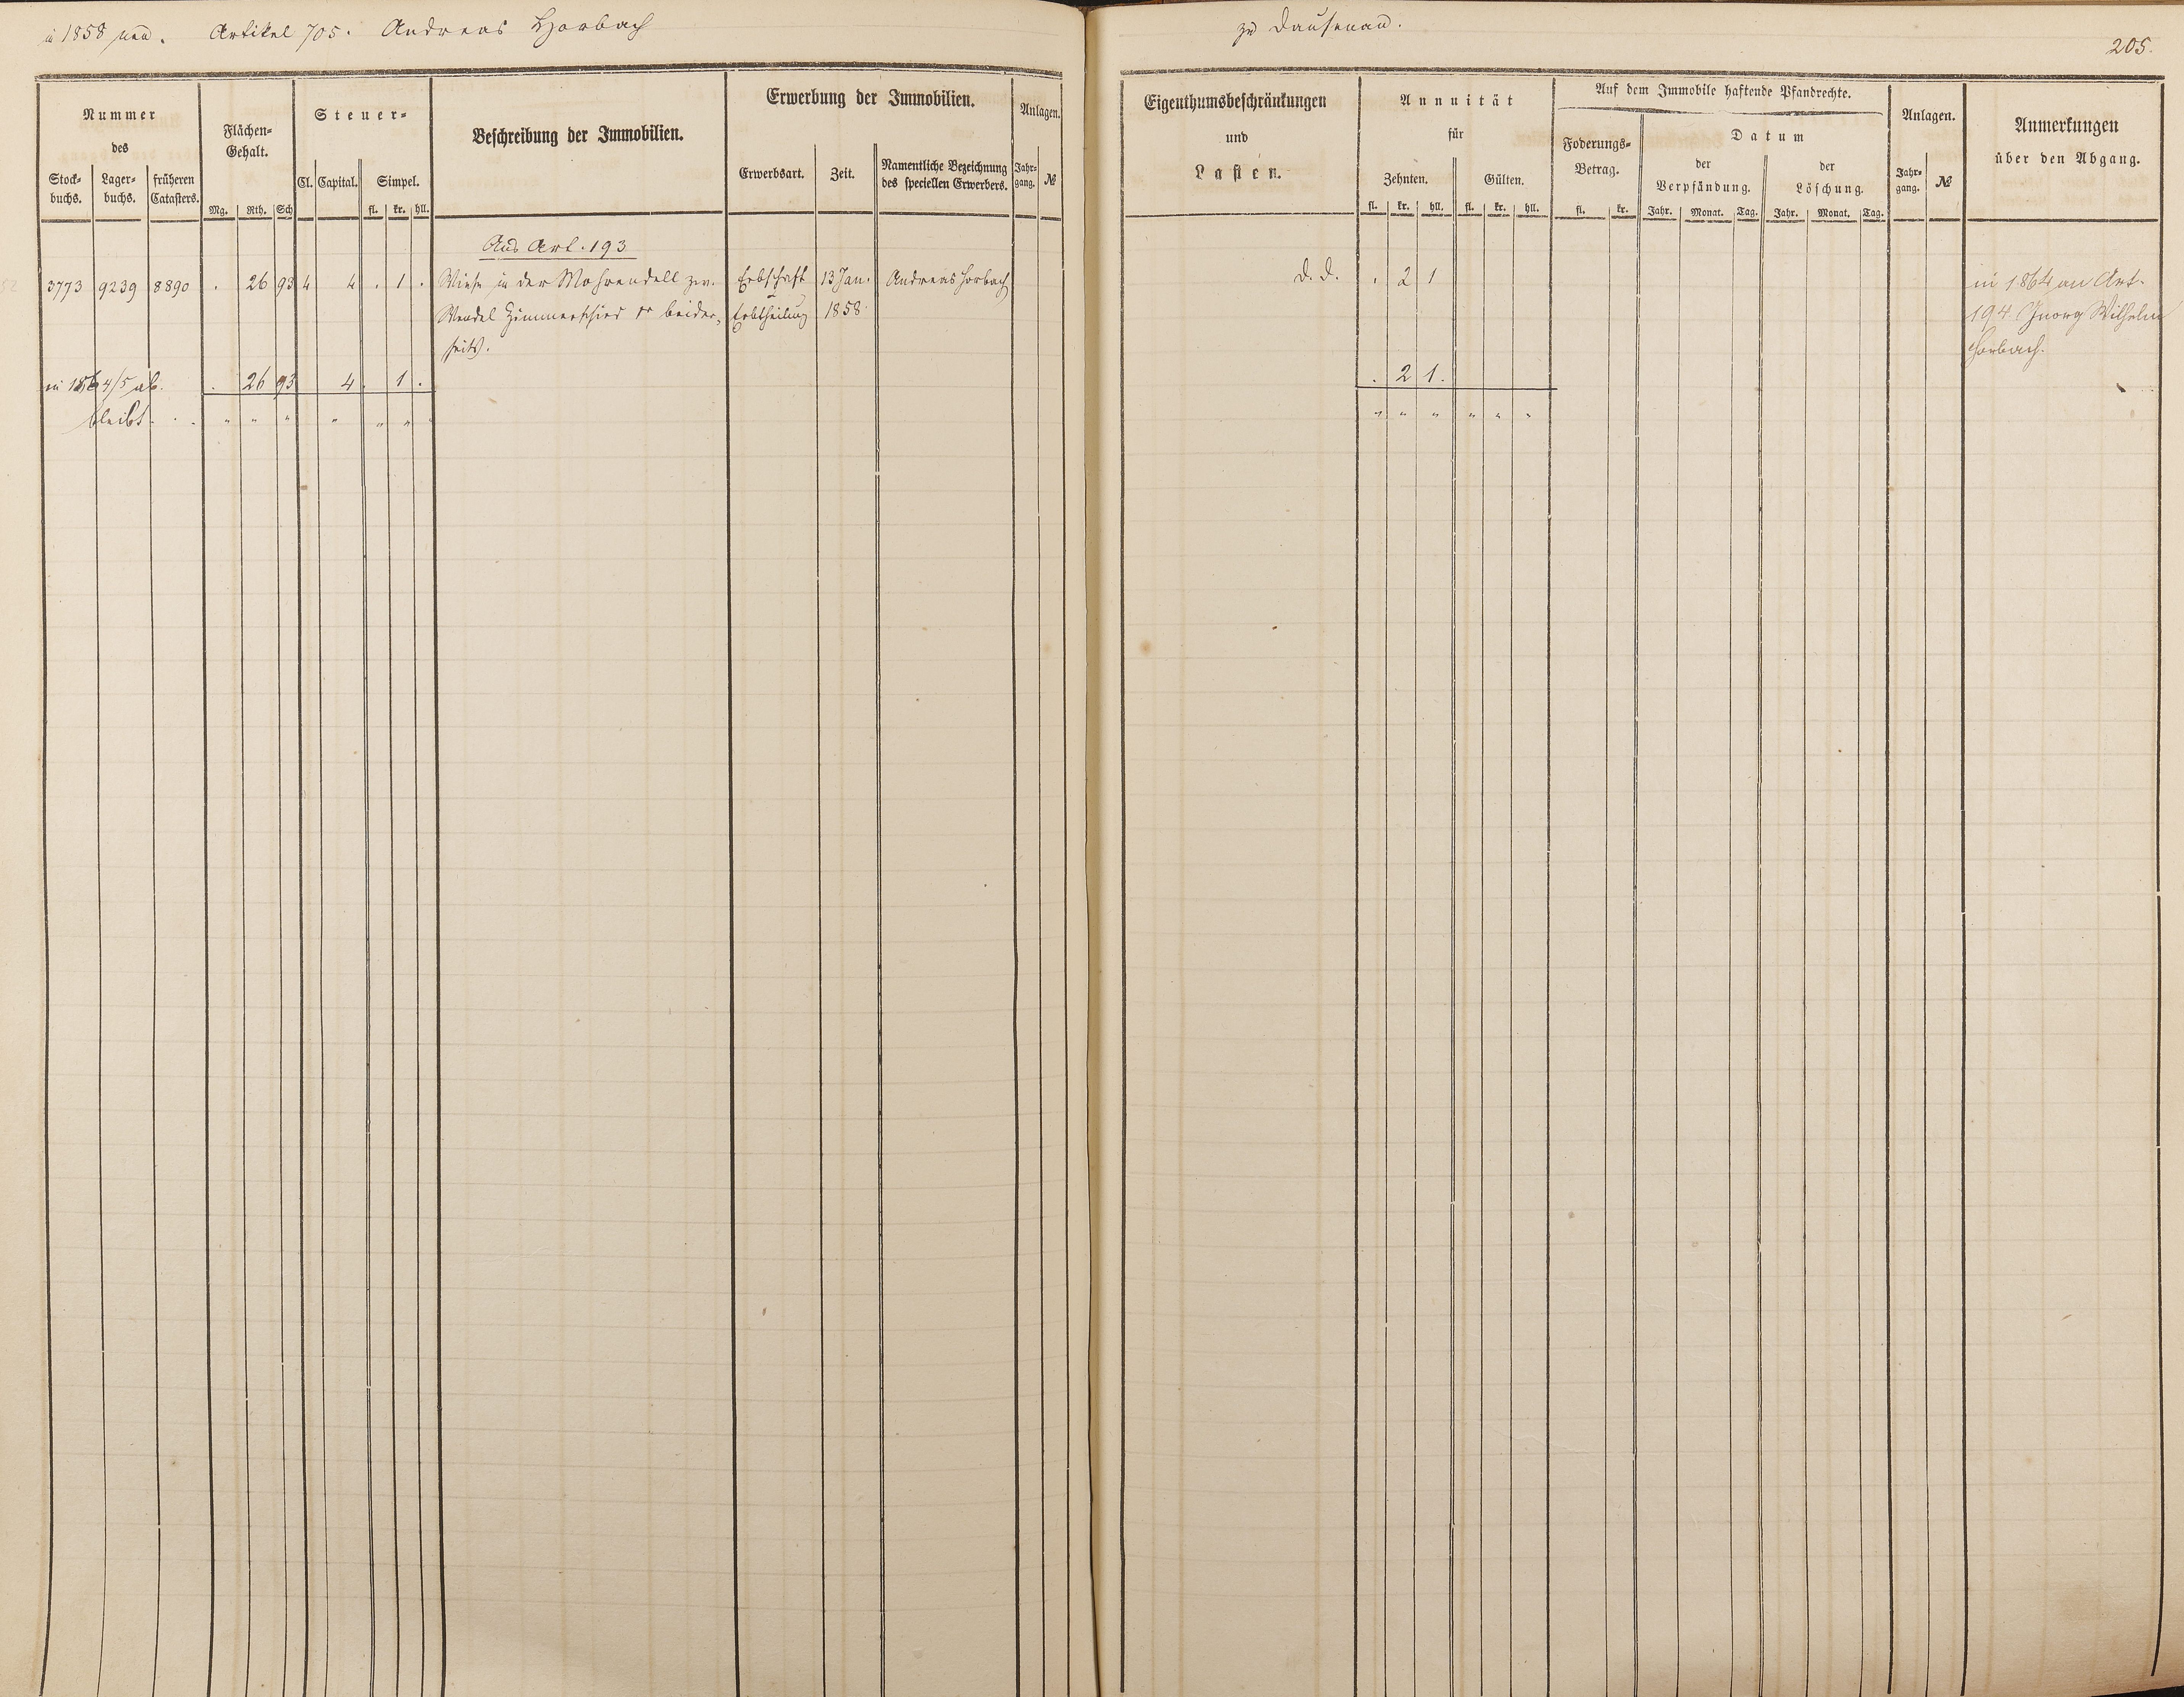 in 1858 neu. Artikel 705. Andreas Horbach
zu Dausenau.
205.
Nummer
des
Stock-
buchs.
Lager-
buchs.
früheren
Catasters.
Flächen-
Gehalt.
Mg. Rth. Sch
Steuer-
Cl. Capital. Simpel.
fl. kr. hll.
Beschreibung der Immobilien.
Erwerbung der Immobilien.
Erwerbsart. Zeit.
Namentliche Bezeichnung
des speciellen Erwerbers.
Anlagen.
Jahr-
gang. №
Eigenthumsbeschränkungen
und
Lasten.
Annuität
für
Zehnten. Gülten.
fl. kr. hll. fl. kr. hll.
Auf dem Immobile haftende Pfandrechte.
Foderungs-
Betrag.
fl. kr.
Datum
der
Verpfändung.
Jahr. Monat. Tag.
der
Löschung.
Jahr. Monat. Tag.
Anlagen.
Jahr-
gang. №
Anmerkungen
über den Abgang.
Aus Art. 193
3773 9239 8890 . 26 93 4 4 . 1 . Wiese in der zw. Erbschaft 13 Jan. Andreas Horbach d. d. . 2 1 in 1864 an Art.
Wendel Zimmerschied beider- Erbtheilung 1858. 194 Georg Wilhelm
seits. Horbach.
in 1864/5 ab. . 26 93 4 . 1 . . 2 1.
bleibt . . " " " " " " " " " " " "